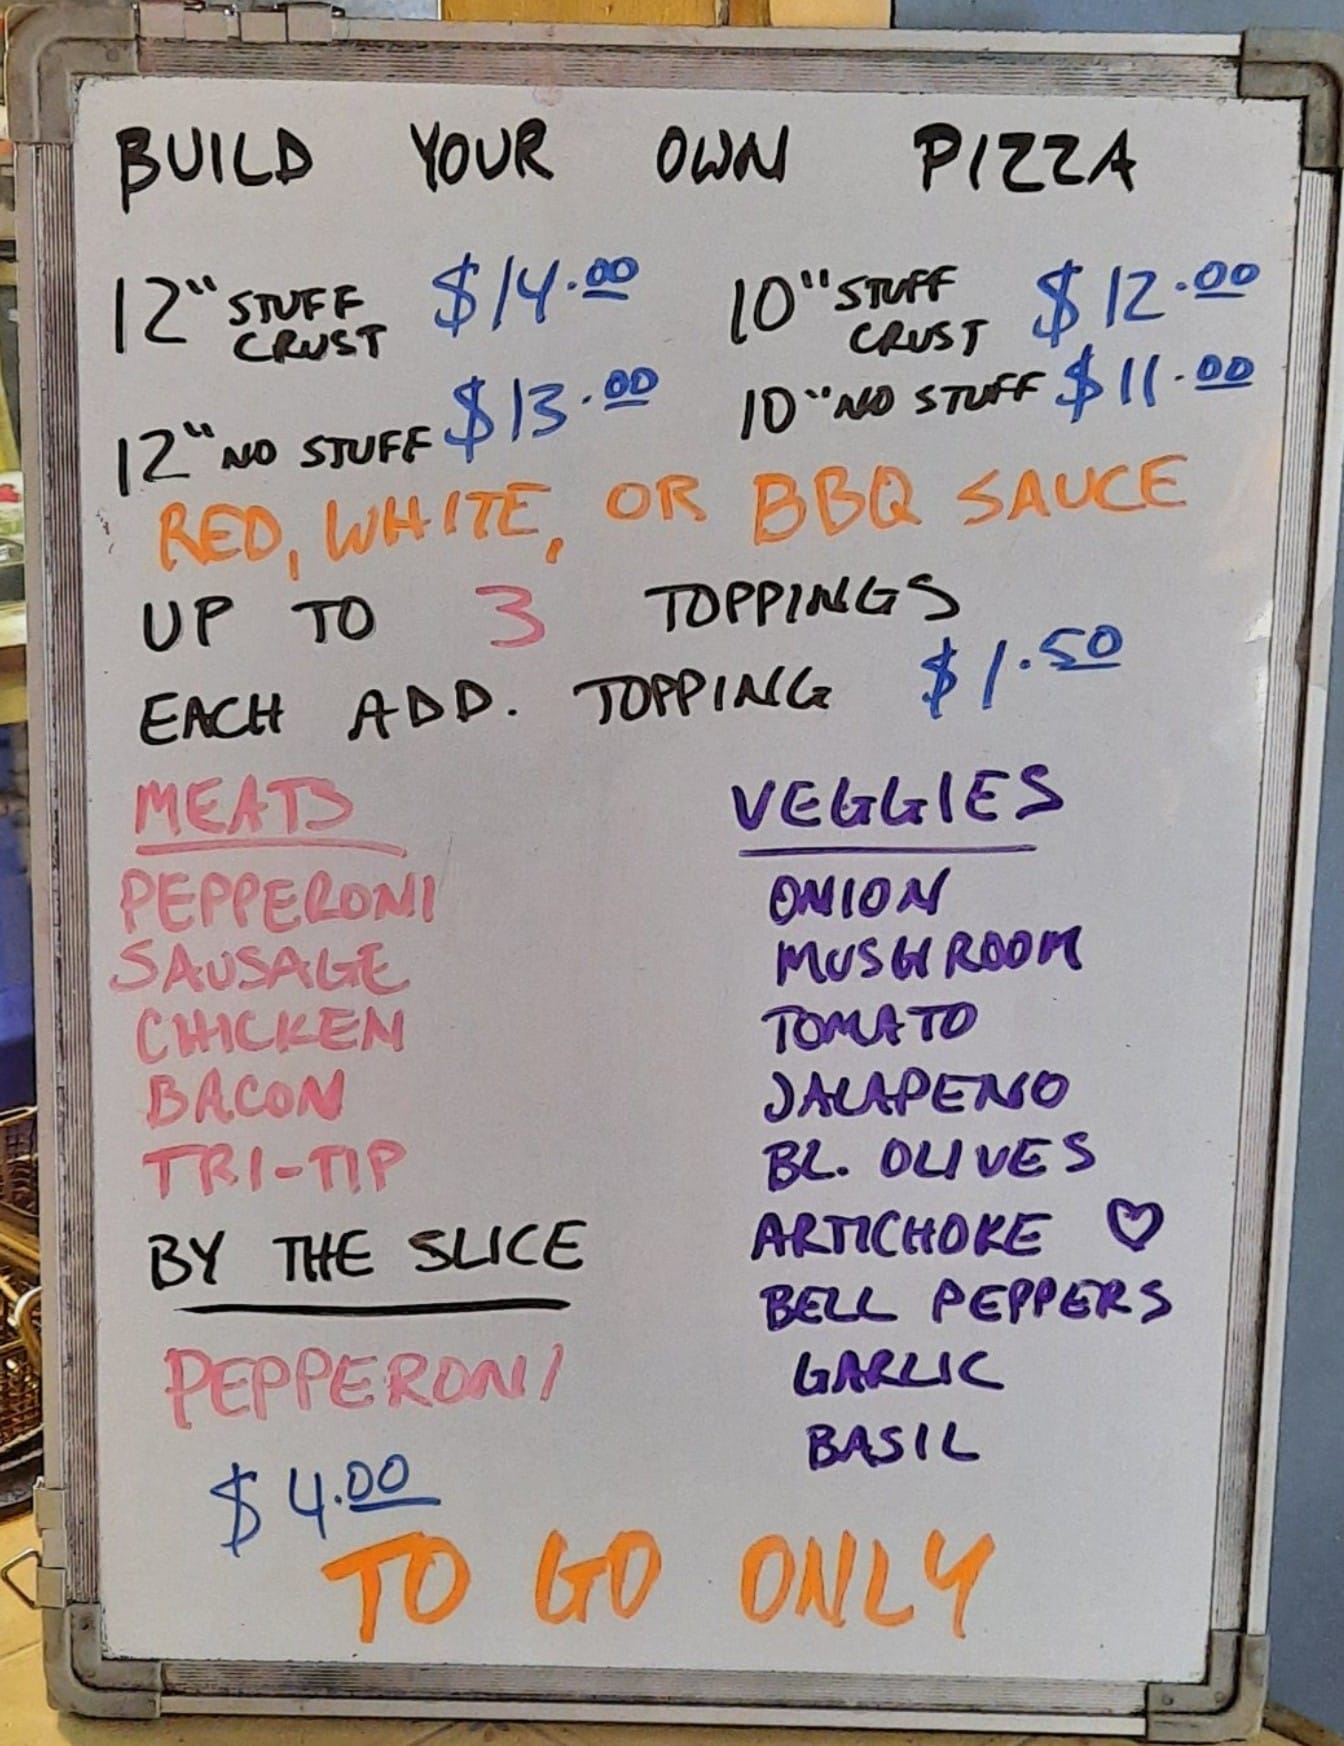 BUILD YOUR OWN PIZZA
12" STUFF CRUST $14.00
10" STUFF CRUST $12.00
12" NO STUFF $13.00
10" NO STUFF $11.00
RED, WHITE, OR BBQ SAUCE
UP TO 3 TOPPINGS
EACH ADD. TOPPING $1.50
MEATS
PEPPERONI
SAUSAGE
CHICKEN
BACON
TRI-TIP
BY THE SLICE
PEPPERONI
$4.00
VEGGIES
ONION
MUSHROOM
TOMATO
JALAPENO
BL. OLIVES
ARTICHOKE ♡
BELL PEPPERS
GARLIC
BASIL
TO GO ONLY